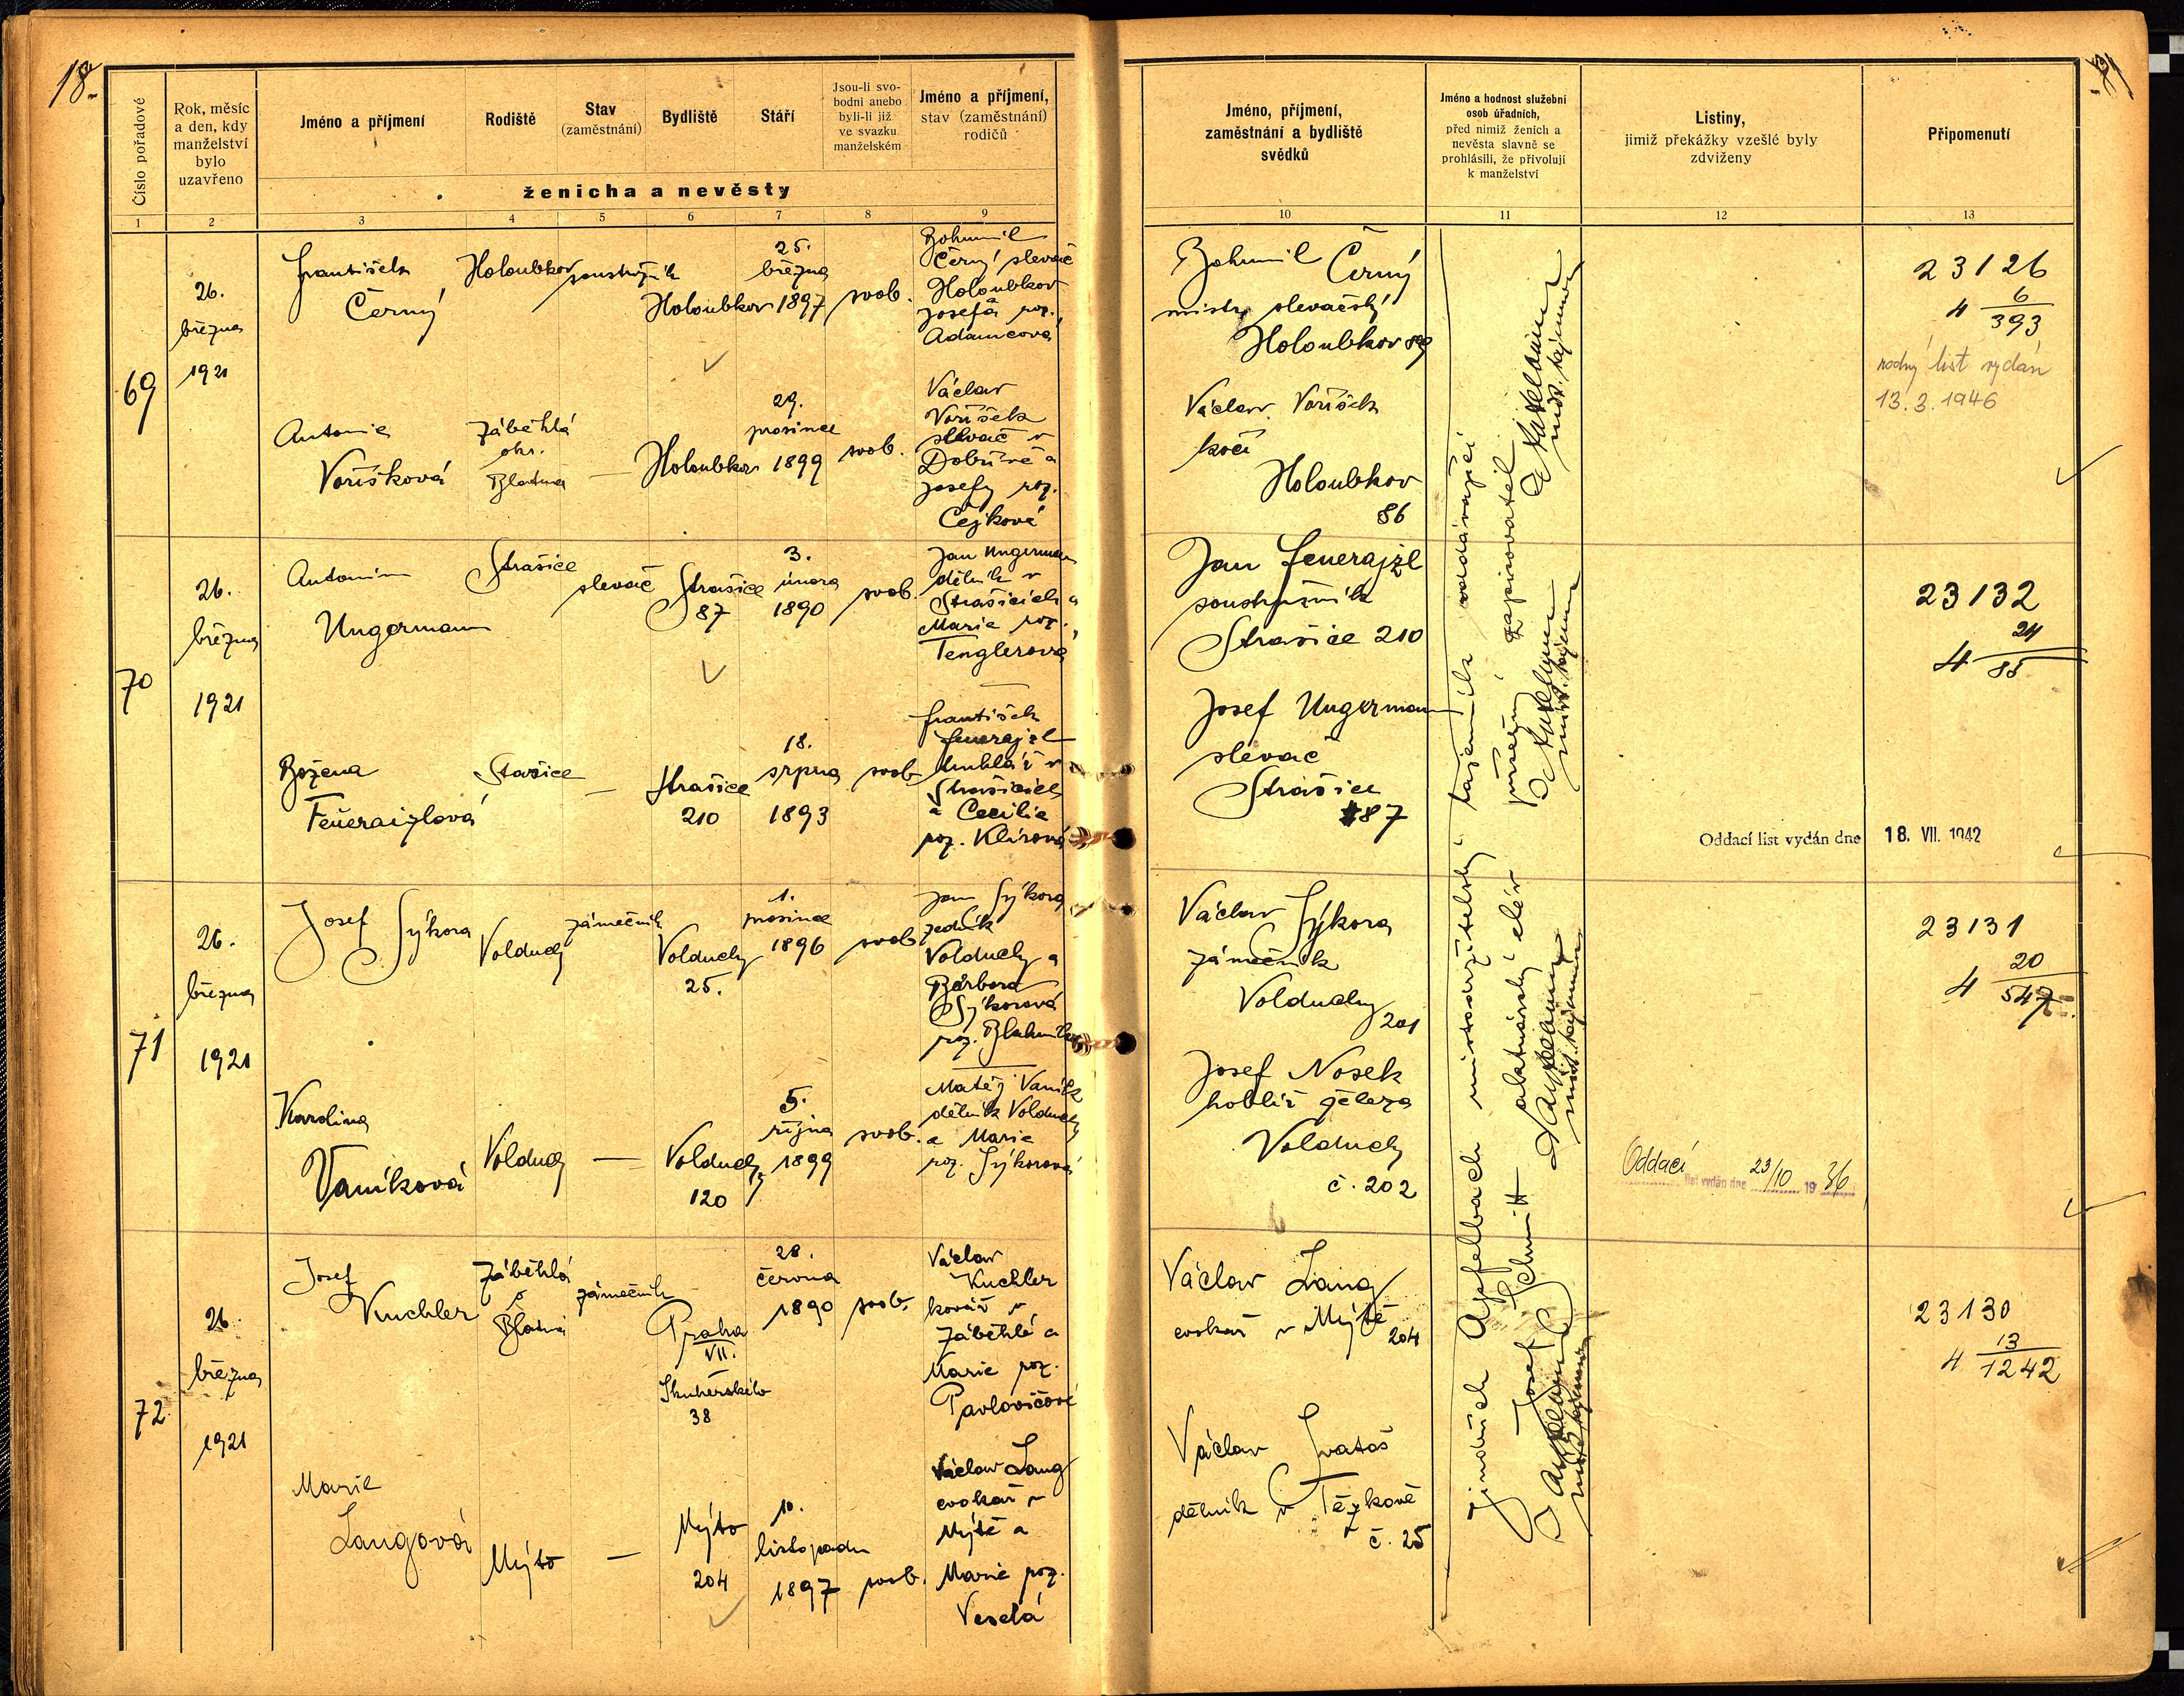 18.
Číslo pořadové
Rok, měsíc
a den, kdy
manželství
bylo
uzavřeno
Jméno a příjmení
Rodiště
Stav
(zaměstnání)
Bydliště
Stáří
Jsou-li svo-
bodni anebo
byli-li již
ve svazku
manželském
Jméno a příjmení,
stav (zaměstnání)
rodičů
ženicha a nevěsty
1 2 3 4 5 6 7 8 9
69
26.
března
1921
František
Černý
Holoubkov
soustružník
Holoubkov
25.
března
1897
svob.
Bohumil
Černý slevač
Holoubkov
Josefa roz.
Adamcová
Antonie
Voríšková
Záběhlá
okr.
Blatna
—
Holoubkov
29.
prosince
1899
svob.
Václav
Voříšek
slevač v
Dobřívě a
Josefy roz.
Čejkové
70
26.
března
1921
Antonín
Ungermann
Strašice
slevač
Strašice
87
3.
února
1890
svob.
Jan Ungerman
dělník v
Strašicích a
Marie roz.
Tenglerová
Božena
Feüeraizlová
Stašice
—
Strašice
210
18.
srpna
1893
svob
František
Feuerajzl
truhlář v
Strašicích
a Cecilie
roz. Klírová
71
26.
března
1921
Josef Sýkora
Volduchy
zámečník
Volduchy
25.
1.
prosince
1896
svob
Jan Sýkora
zedník
Volduchy a
Barbora
Sýkorová
roz.
Karolina
Vaníková
Volduchy
—
Volduchy
120
5.
října
1899
svob.
Matěj Vaník
dělník Volduchy
a Marie
roz. Sýkorová
72
26.
března
1921
Josef
Kuchler
Záběhlá
Blatná
zámečník
Praha
VII.
Skuherského
38
28.
června
1890
svob.
Václav
Kuchler
kovář v
Záběhlé a
Marie roz.
Pavlovičové
Marie
Langová
Mýto
—
Mýto
204
10.
listopadu
1897
svob.
Václav Lang
cvokař v
Mýtě a
Marie roz.
Veselá
Jméno, příjmení,
zaměstnání a bydliště
svědků
Jméno a hodnost služební
osob úřadních,
před nimiž ženich a
nevěsta slavně se
prohlásili, že přivolují
k manželství
Listiny,
jimiž překážky vzešlé byly
zdviženy
Připomenutí
10 11 12 13
Bohumil Černý
mistr slevačský
Holoubkov 89
Václav Voříšek
kočí
Holoubkov
86
Jan Feuerajzl
soustružník
Strašice 210
Josef Ungermann
slevač
Strašice
87
Václav Sýkora
zámečník
Volduchy
201
Josef Nosek
hoblíř železa
Volduchy
č. 202
Václav Lang
cvokař v Mýtě
204
Václav Svatoš
dělník v Těškově
č. 25
Jindřich Apfelbach místodržitelský tajemník oddávající
Josef Schmitt aktuárský elév přísežný zapisovatel
23126
4 6/393
rodný list vydán
13.3.1946
23132
4 24/85
Oddací list vydán dne 18. VII. 1942
23131
4 20/547
Oddací list vydán dne 23/10 1936
23130
4 13/1242